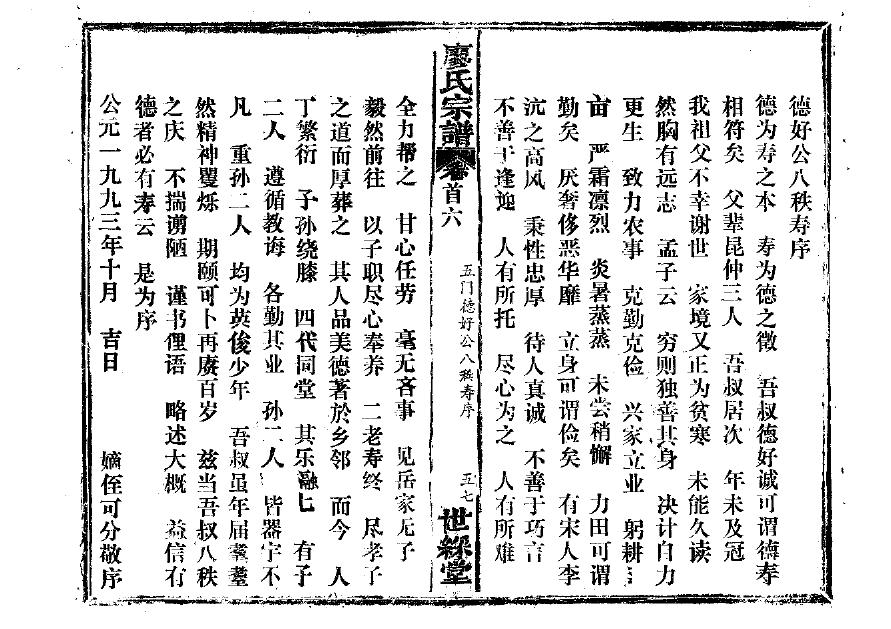 德好公八秩寿序
德为寿之本 寿为德之徵 吾叔德好诚可谓德寿
相符矣 父辈昆仲三人 吾叔居次 年未及冠
我祖父不幸谢世 家境又正为贫寒 未能久读
然胸有远志 孟子云 穷则独善其身 决计自力
更生 致力农事 克勤克俭 兴家立业 躬耕
亩 严霜凛烈 炎暑蒸蒸 未尝稍懈 力田可谓
勤矣 厌奢侈恶华靡 立身可谓俭矣 有宋人李
沆之高风 秉性忠厚 待人真诚 不善于巧言
不善于逢迎 人有所托 尽心为之 人有所难
廖氏宗譜 卷首六 五门德好公八秩寿序 五七 世綵堂
全力帮之 甘心任劳 毫无吝事 见岳家无子
毅然前往 以子职尽心奉养 二老寿终 尽孝子
之道而厚葬之 其人品美德著於乡邻 而今 人
丁繁衍 子孙绕膝 四代同堂 其乐融七 有子
二人 遵循教诲 各勤其业 孙二人 皆器宇不
凡 重孙二人 均为英俊少年 吾叔虽年届耄耋
然精神矍烁 期颐可卜再赓百岁 兹当吾叔八秩
之庆 不揣谫陋 谨书俚语 略述大概 益信有
德者必有寿云 是为序
公元一九九三年十月 吉日 嫡侄可分敬序